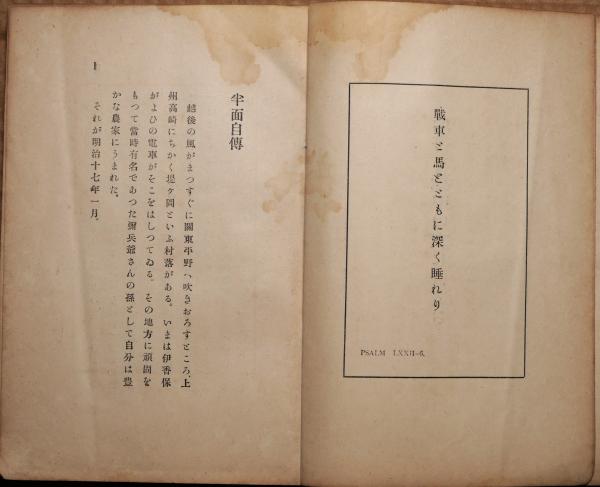 戰車と馬とともに深く睡れり
PSALM LXXII-6.
半面自傳
越後の風がまつすぐに關東平野へ吹きおろすところ、上
州高崎にちかく堤ヶ岡といふ村落がある。いまは伊香保
がよひの電車がそこをはしつてゐる。その地方に頑固を
もつて當時有名であつた彌兵爺さんの孫として自分は豊
かな農家にうまれた。
それが明治十七年一月。
1